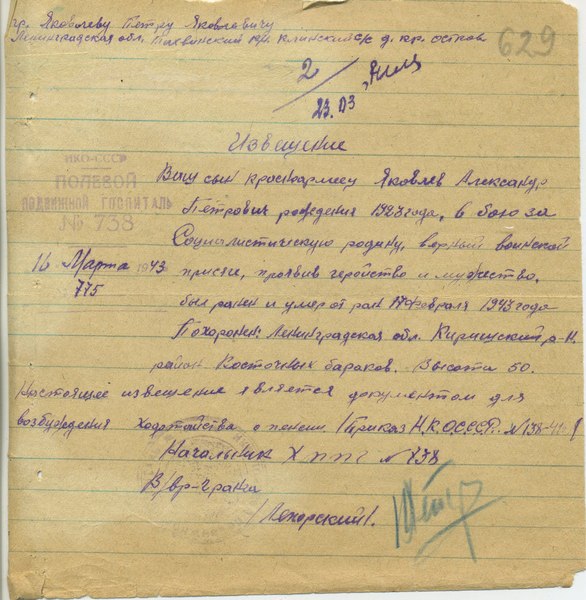 гр. Яковлеву Петру Яковлевичу
Ленинградская обл. Тихвинский рн. Клинский с/с д. кр. остров
629
2/
23.03
Извещение
НКО-СССР
ПОЛЕВОЙ
ПОДВИЖНОЙ ГОСПИТАЛЬ
№ 738
16 Марта 1943
775
Ваш сын красноармеец Яковлев Александр
Петрович рождения 1923 года, в бою за
Социалистическую родину, верный воинской
присяге, проявив геройство и мужество,
был ранен и умер от ран 17 февраля 1943 года
Похоронен: Ленинградская обл. Киришский р-н
район Косточных бараков. Высота 50.
Настоящее извещение является документом для
возбуждения ходатайства о пенсии. /Приказ Н.К.О.С.С.С.Р. №138-41г/
Начальник Х П П Г № 738
В/вр-1 ранга
/Лехорский/.